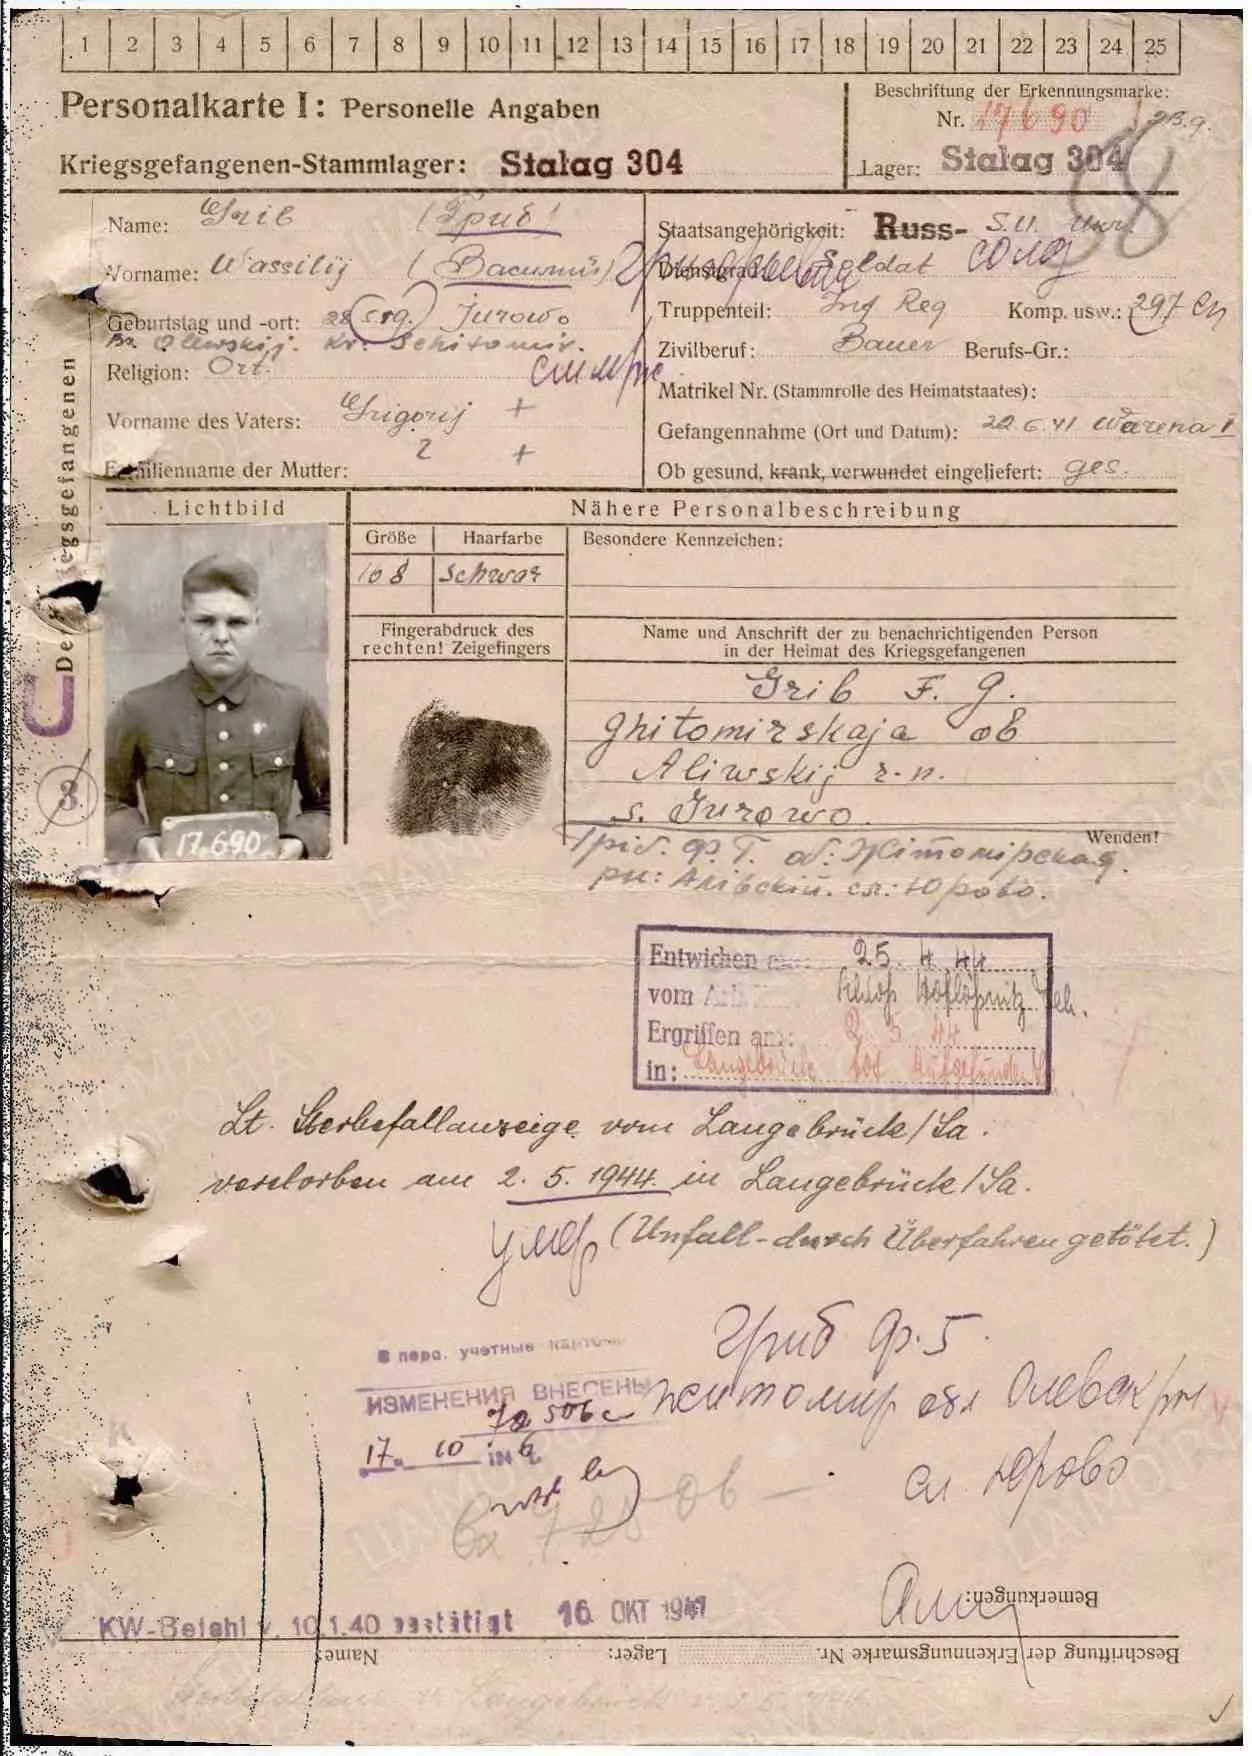 1 2 3 4 5 6 7 8 9 10 11 12 13 14 15 16 17 18 19 20 21 22 23 24 25
Personalkarte I: Personelle Angaben
Beschriftung der Erkennungsmarke:
Nr. 17690
Kriegsgefangenen-Stammlager: Stalag 304
Lager: Stalag 304
Name: Grib (Гриб)
Vorname: Wassilij (Василий)
Geburtstag und -ort: 28.5.19. Jurowo
Olewskij. Kr. Schitomir.
Religion: Ort.
Vorname des Vaters: Grigorij +
Familienname der Mutter: ? +
Staatsangehörigkeit: Russ- S.U. Ukr.
Dienstgrad: Soldat солд
Truppenteil: Inf Reg Komp. usw.: 297 сп
Zivilberuf: Bauer Berufs-Gr.:
Matrikel Nr. (Stammrolle des Heimatstaates):
Gefangennahme (Ort und Datum): 22.6.41 Warena I
Ob gesund, krank, verwundet eingeliefert: ges.
Des Kriegsgefangenen
Lichtbild
17.690
Nähere Personalbeschreibung
Größe Haarfarbe Besondere Kennzeichen:
168 schwar
Fingerabdruck des
rechten! Zeigefingers
Name und Anschrift der zu benachrichtigenden Person
in der Heimat des Kriegsgefangenen
Grib F. G.
Ghitomirskaja ob
Aliwskij r-n.
s. Jurowo.
Wenden!
Гріб. Ф. Г. об: Жітомірская.
рн: Алівскій. сл: Юрово.
Entwichen am: 25. 4. 44
vom Schloß Hoflößnitz
Ergriffen am: 2 5 44
in: Langebrück tot aufgefunden
Lt. Sterbefallanzeige vom Langebrück/Sa.
verstorben am 2. 5. 1944. in Langebrück/Sa.
умер (Unfall-durch Überfahren getötet.)
Гриб Ф. Г.
Житомир обл Олевск рн
сл Юрово
В перс. учетные карточ
ИЗМЕНЕНИЯ ВНЕСЕНЫ
17. 10
Bemerkungen:
KW-Befehl v. 10.1.40 bestätigt 16 ОКТ 1941
Beschriftung der Erkennungsmarke Nr. Lager: Name: